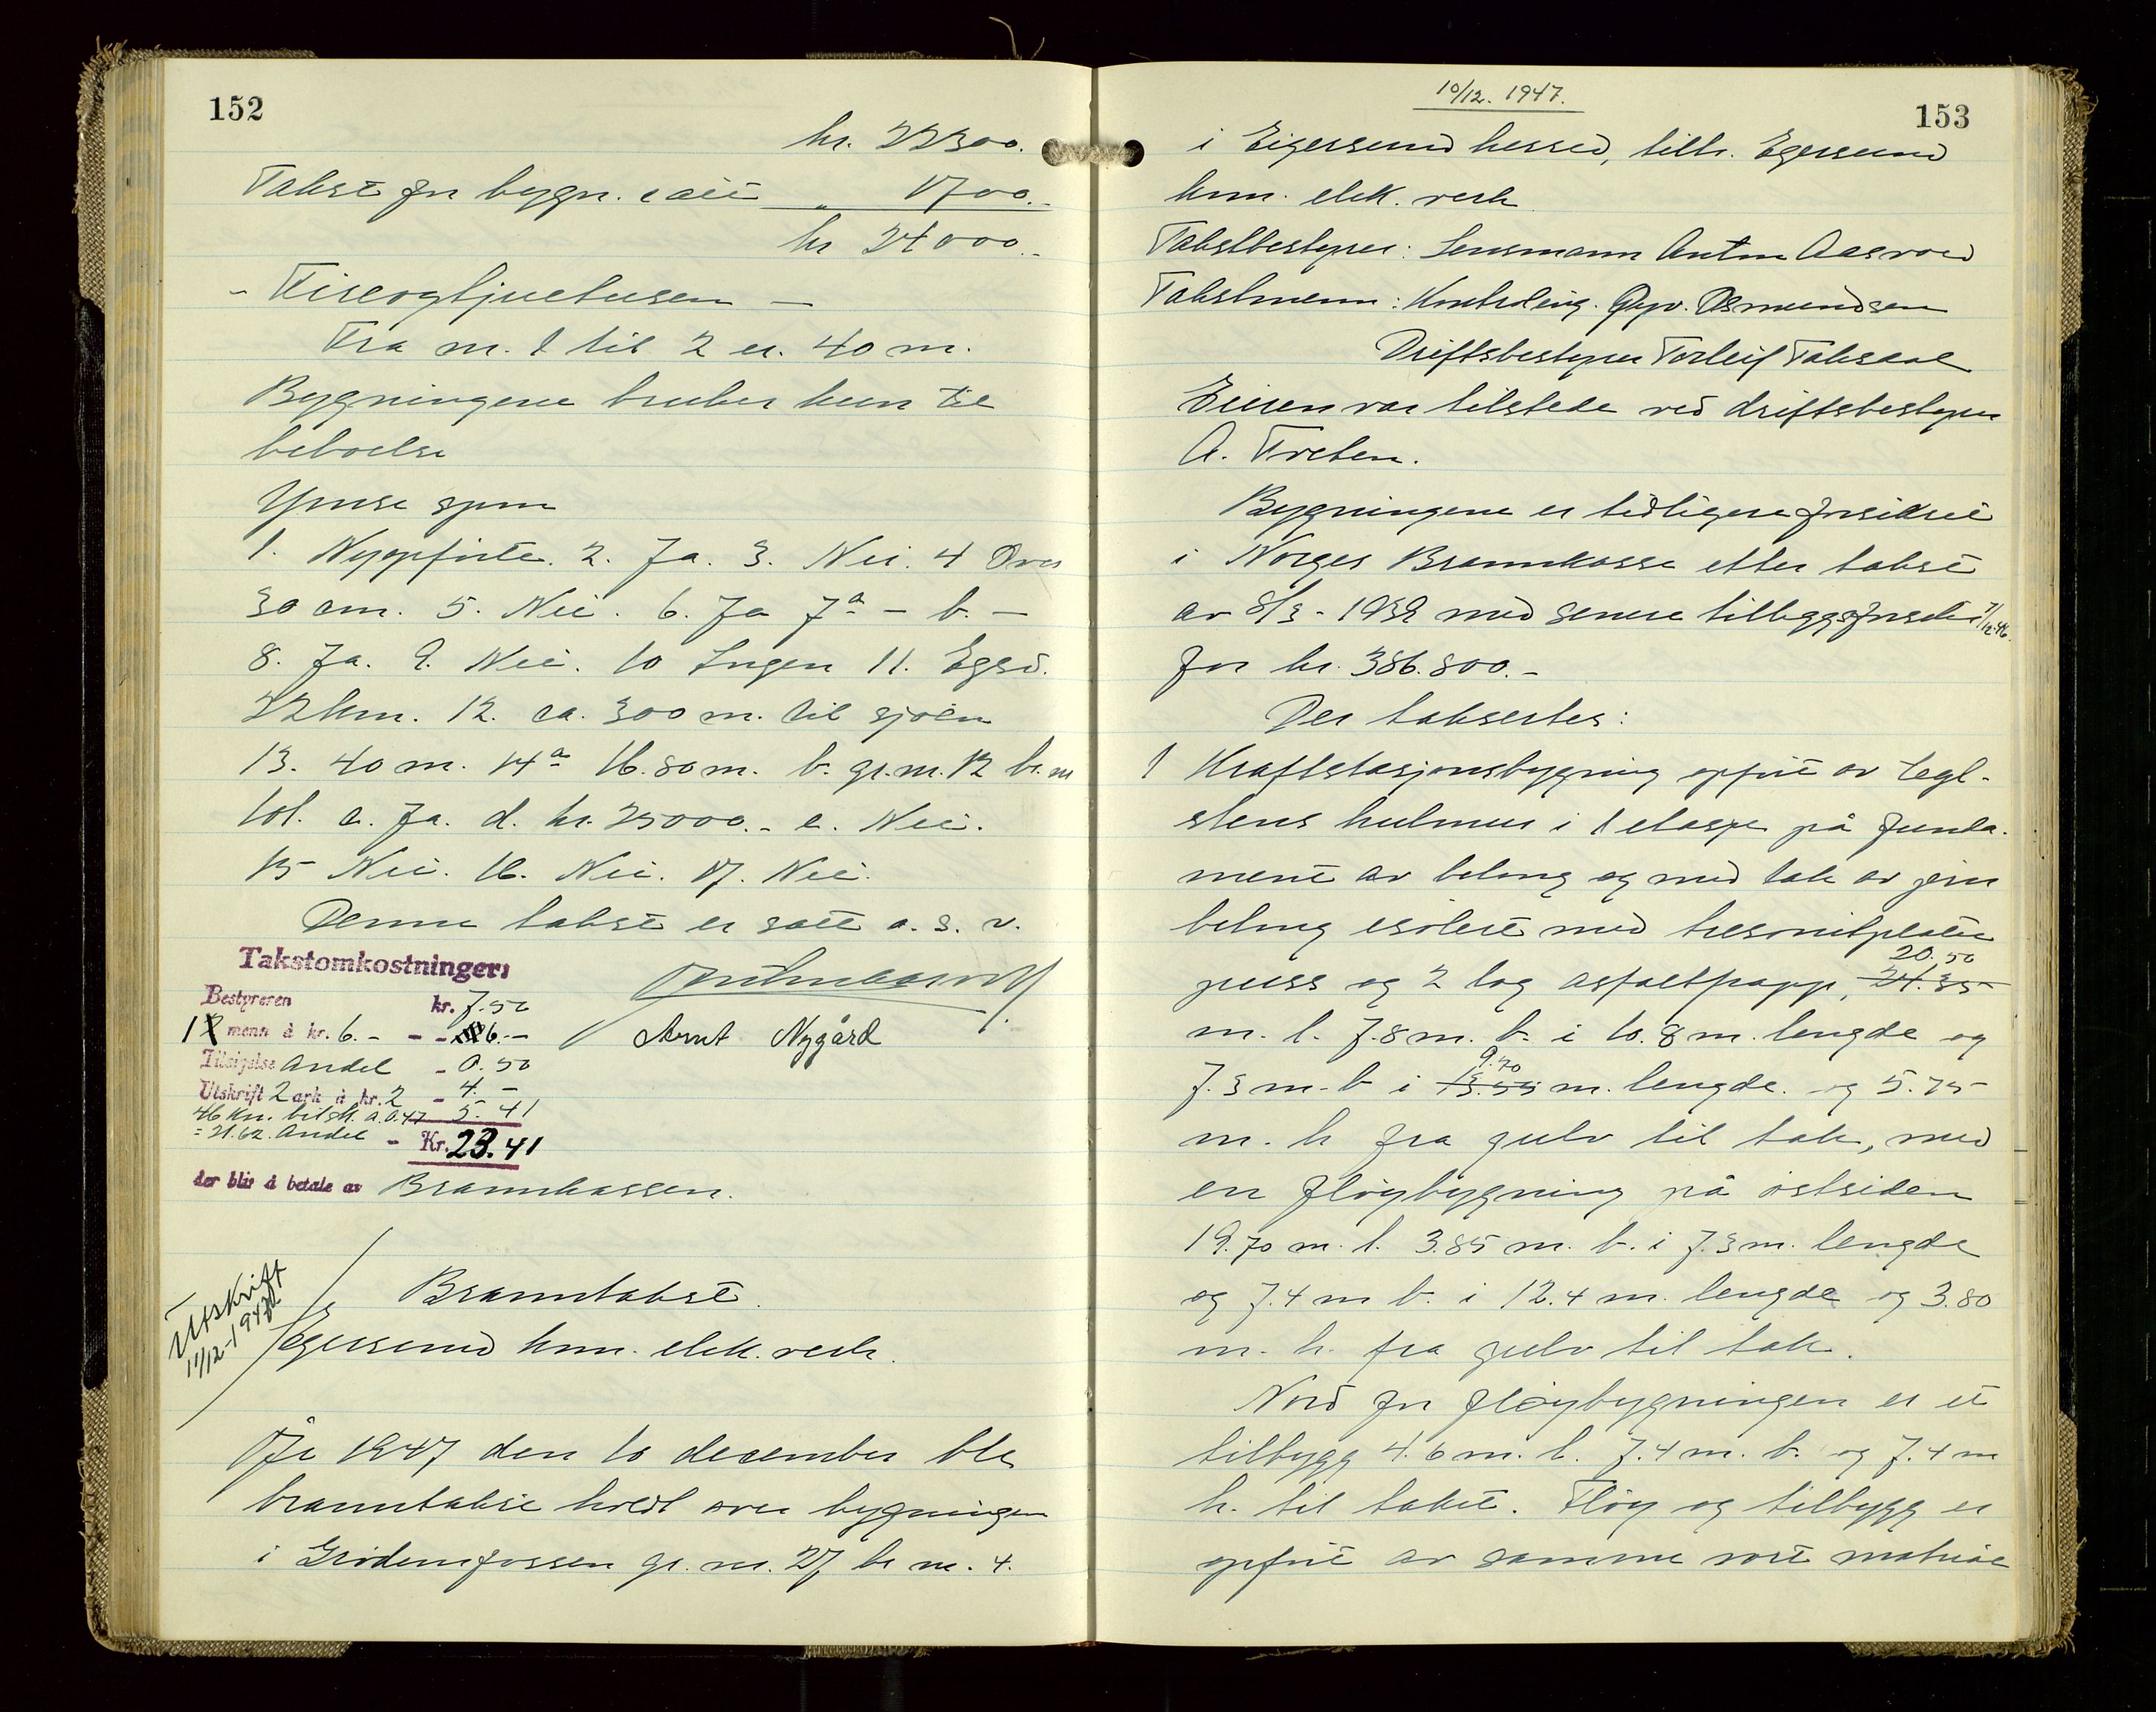 152
kr. 22300.
Takst for bygn. i alt " 1700.-
kr 24000.-
- Tireogtjuetusen -
Fra nr. 1 til 2 er. 40 m.
Bygningene brukes kun til
beboelse
Ymse spm
1. Nyoppførte. 2. Ja. 3. Nei. 4 Over
30 cm. 5. Nei. 6. Ja 7a - b. -
8. Ja. 9. Nei. 10 Ingen 11. Egsd.
22 km. 12. ca. 300 m. til sjøen
13. 40 m. 14a 16.80 m. b. gr. nr. 12 br. nr
101. c. Ja. d. kr. 25000.- e. Nei.
15 Nei. 16. Nei. 17. Nei.
Denne takst er satt o. s. v.
Takstomkostninger:
Bestyreren kr. 7.50
1 menn à kr. 6.- - - 6.-
Arnt Nygård
Tilsigelse Andel - 0.50
Utskrift 2 ark à kr. 2 - 4.-
46 Km. bilsk. a 0.47 5. 41
= 21.62. Andel - Kr. 23.41
der blir å betale av Brannkassen.
Utskrift
11/12-1947
Branntakst.
Egersund kom. elek. verk.
År 1947 den 10 december ble
branntakst holdt over bygningen
i Grødemfossen gr. nr. 27, br nr. 4.
10/12. 1947.
153
i Eigersund herred, tilh. Egersund
kom. elek. verk
Takstbestyrer: Lensmann Anton Aasvold
Takstmenn: Kontroling. Osmundsen
Driftsbestyrer Torleif Taksdal
Eieren var tilstede ved driftsbestyrer
A. Treten.
Bygningene er tidligere forsikret
i Norges Brannkasse etter takst
av 8/3 - 1939 med senere tilleggsforsikr 7/12-46.
for kr. 386.800.-
Der takseres:
1 Kraftstasjonsbygning opført av tegl-
stens hulmur i 1 etasje på funda-
ment av betong og med tak av jern
betong isolert med tresonitplater
20.50
puss og 2 lag asfaltpapp, 21.35
m. l. 7.8 m. b. i 10.8 m. lengde og
9.70
7.3 m. b i 13.55 m. lengde. og 5.75
m. h fra gulv til tak, med
en fløybygning på østsiden
19.70 m. l. 3.85 m. b. i 7.3 m. lengde
og 7.4 m b. i 12.4 m. lengde og 3.80
m. h. fra gulv til tak.
Nord for fløybygningen er et
tilbygg 4.6 m. l. 7.4 m. b. og 7.4 m
h. til taket. Fløy og tilbygg er
opført av samme sort materiale